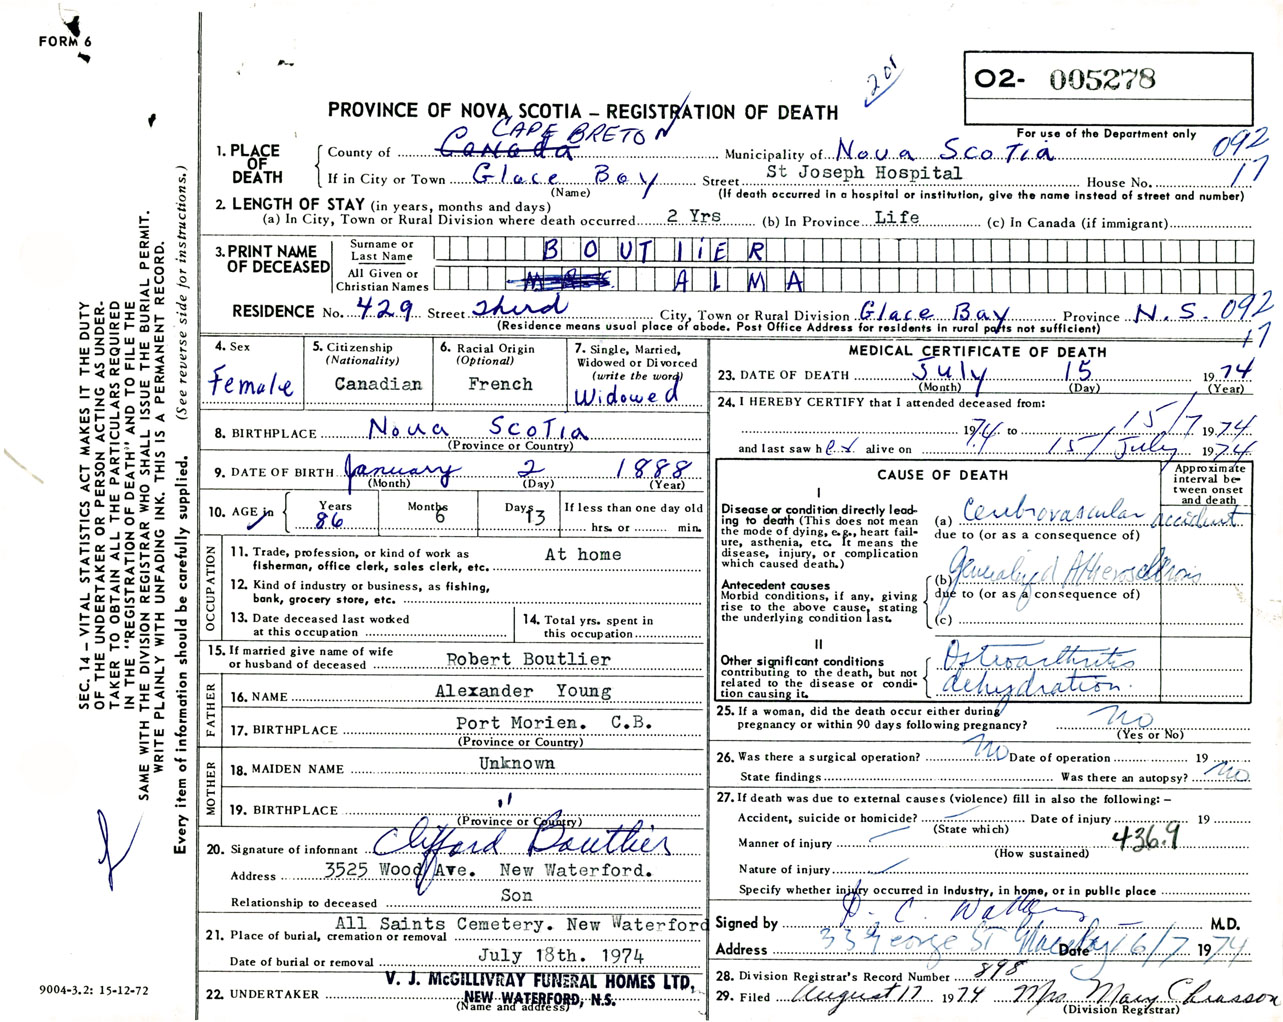 FORM 6
201
O2- 005278
PROVINCE OF NOVA SCOTIA – REGISTRATION OF DEATH
For use of the Department only
CAPE BRETON
1. PLACE OF DEATH
County of Canada Municipality of Nova Scotia 092
If in City or Town Glace Bay Street St Joseph Hospital House No. 17
(Name) (If death occurred in a hospital or institution, give the name instead of street and number)
2. LENGTH OF STAY (in years, months and days)
(a) In City, Town or Rural Division where death occurred 2 Yrs (b) In Province Life (c) In Canada (if immigrant)
3. PRINT NAME OF DECEASED
Surname or Last Name BOUTLiER
All Given or Christian Names MRS ALMA
RESIDENCE No. 429 Street Third City, Town or Rural Division Glace Bay Province N.S. 092
(Residence means usual place of abode. Post Office Address for residents in rural parts not sufficient) 17
4. Sex Female
5. Citizenship (Nationality) Canadian
6. Racial Origin (Optional) French
7. Single, Married, Widowed or Divorced (write the word) Widowed
8. BIRTHPLACE Nova Scotia
(Province or Country)
9. DATE OF BIRTH January 2 1888
(Month) (Day) (Year)
10. AGE in Years 86 Months 6 Days 13 If less than one day old hrs. or min.
OCCUPATION
11. Trade, profession, or kind of work as fisherman, office clerk, sales clerk, etc. At home
12. Kind of industry or business, as fishing, bank, grocery store, etc.
13. Date deceased last worked at this occupation
14. Total yrs. spent in this occupation
15. If married give name of wife or husband of deceased Robert Boutlier
FATHER
16. NAME Alexander Young
17. BIRTHPLACE Port Morien. C.B.
(Province or Country)
MOTHER
18. MAIDEN NAME Unknown
19. BIRTHPLACE "
(Province or Country)
20. Signature of informant Clifford Boutlier
Address 3525 Wood Ave. New Waterford.
Relationship to deceased Son
21. Place of burial, cremation or removal All Saints Cemetery. New Waterford
Date of burial or removal July 18th. 1974
22. UNDERTAKER V. J. McGILLIVRAY FUNERAL HOMES LTD,
NEW WATERFORD, N.S.
(Name and address)
MEDICAL CERTIFICATE OF DEATH
23. DATE OF DEATH July 15 1974
(Month) (Day) (Year)
24. I HEREBY CERTIFY that I attended deceased from:
1974 to 15/7 1974
and last saw her alive on 15/July 1974
CAUSE OF DEATH
Approximate interval between onset and death
I
Disease or condition directly leading to death (This does not mean the mode of dying, e.g., heart failure, asthenia, etc. It means the disease, injury, or complication which caused death.)
(a) Cerebrovascular accident
due to (or as a consequence of)
Antecedent causes
Morbid conditions, if any, giving rise to the above cause, stating the underlying condition last.
(b) Generalized Atherosclerosis
due to (or as a consequence of)
(c)
II
Other significant conditions contributing to the death, but not related to the disease or condition causing it.
Osteoarthritis
dehydration.
25. If a woman, did the death occur either during pregnancy or within 90 days following pregnancy? no
(Yes or No)
26. Was there a surgical operation? no Date of operation 19
State findings Was there an autopsy? no
27. If death was due to external causes (violence) fill in also the following: –
Accident, suicide or homicide? Date of injury 19
(State which)
Manner of injury 436.9
(How sustained)
Nature of injury
Specify whether injury occurred in industry, in home, or in public place
Signed by M.D.
Address 33 George St Glace Bay Date 16/7 1974
28. Division Registrar's Record Number 898
29. Filed August 17 1974 Mrs Mary Chiasson
(Division Registrar)
SEC. 14 – VITAL STATISTICS ACT MAKES IT THE DUTY
OF THE UNDERTAKER OR PERSON ACTING AS UNDER-
TAKER TO OBTAIN ALL THE PARTICULARS REQUIRED
IN THE "REGISTRATION OF DEATH" AND TO FILE THE
SAME WITH THE DIVISION REGISTRAR WHO SHALL ISSUE THE BURIAL PERMIT.
WRITE PLAINLY WITH UNFADING INK. THIS IS A PERMANENT RECORD.
Every item of information should be carefully supplied. (See reverse side for instructions.)
9004-3.2: 15-12-72